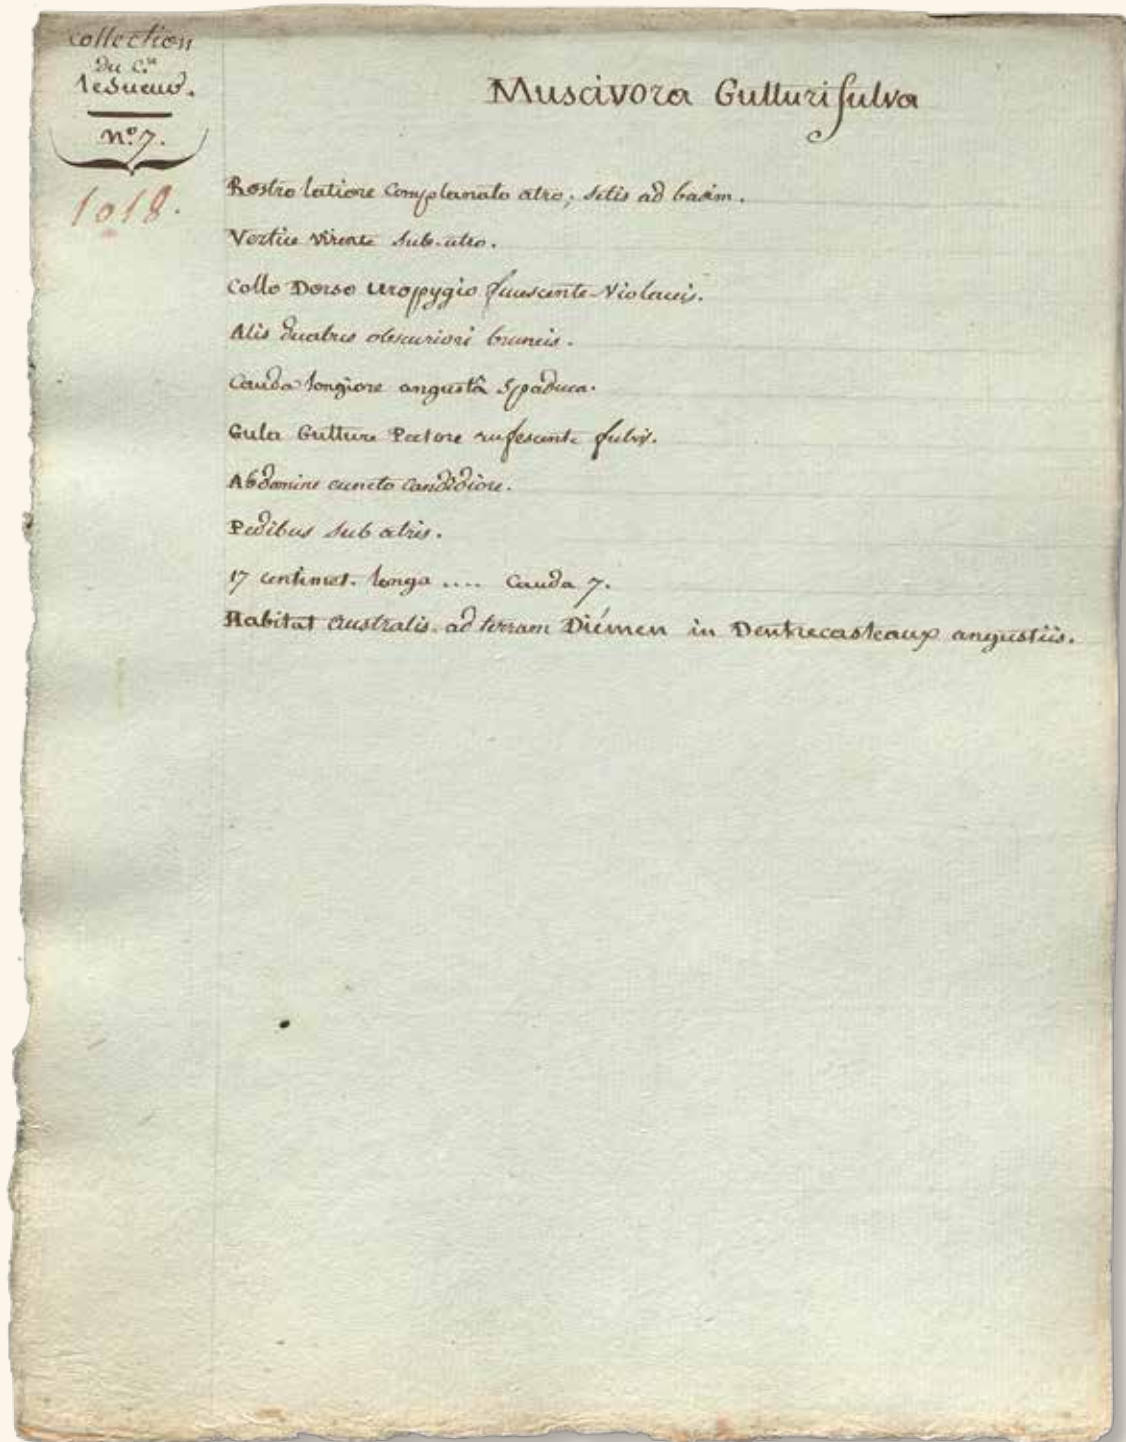 collection
du C.en
lesueur.
n.º 7.
1018.
Muscivora Gutturi fulva
Rostro latiore Complanato atro; setis ad basim.
Vertice virente sub-atro.
Collo Dorso uropygio fuscente-Violaceis.
Alis duabus obscuriori bruneis.
Cauda longiore angustâ Spadicea.
Gula Gutture Pectore rufescente fulvis.
Abdomine cuncto candidiore.
Pedibus sub atris.
17 centimet. longa .... Cauda 7.
Habitat australis. ad terram Diémen in Dentrecasteaux angustiis.